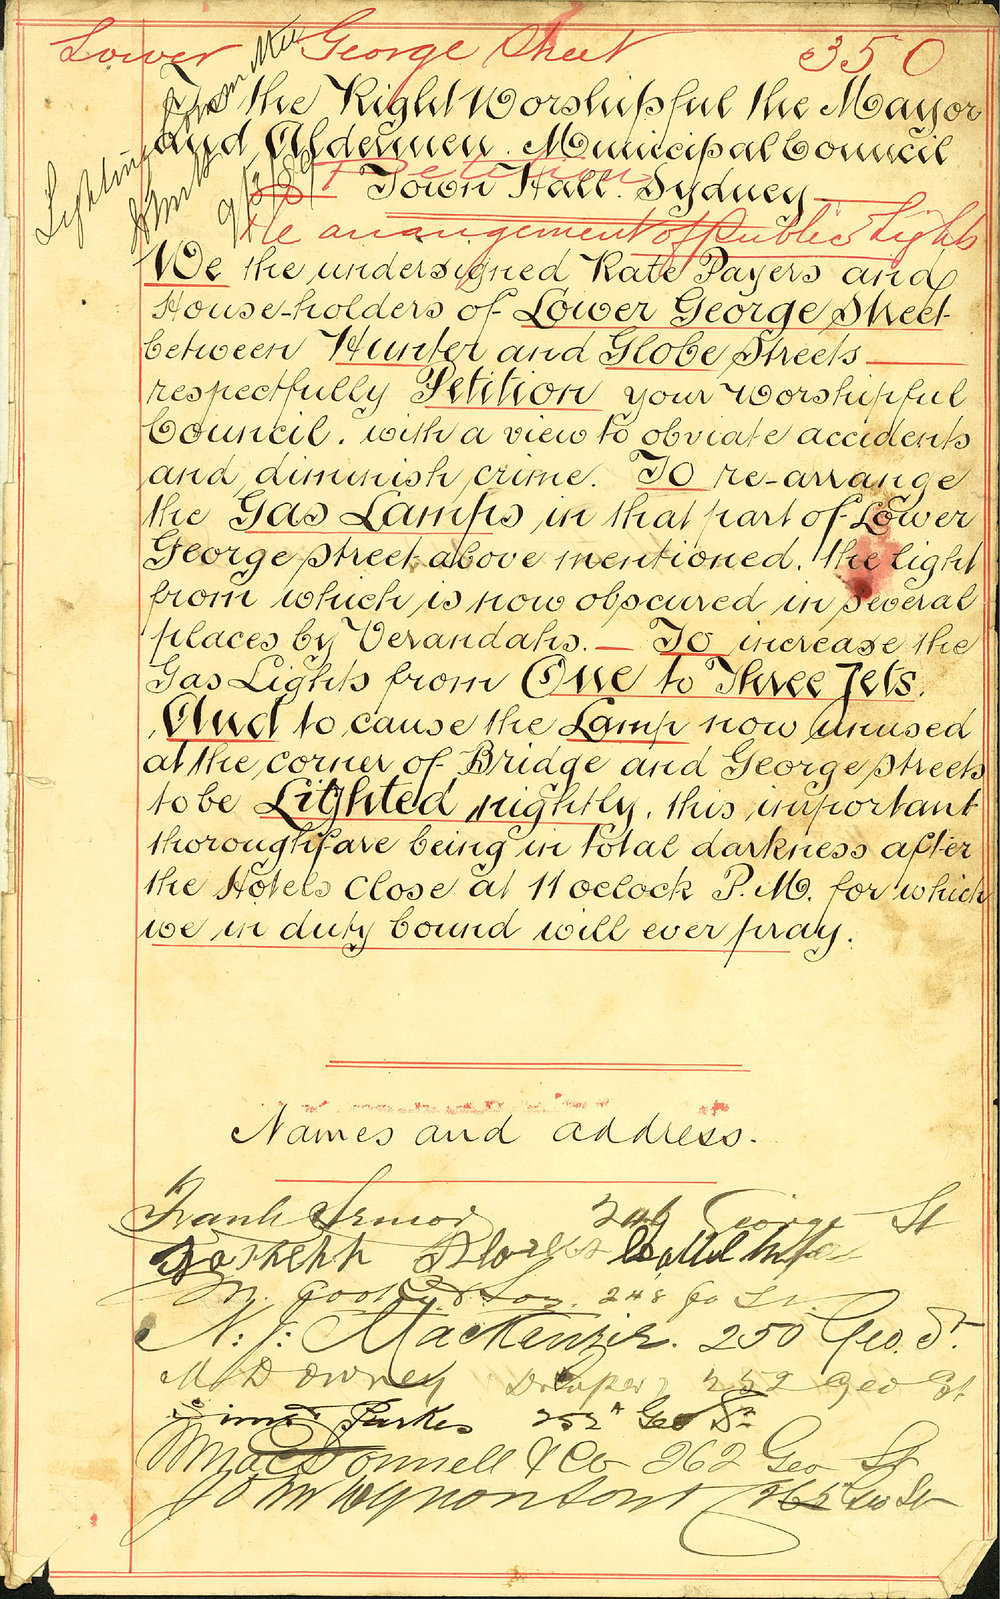 Lower George Street 350
To the Right Worshipful the Mayor
and Aldermen. Municipal Council
Town Hall. Sydney
Lighting Committee
9/3/89
Petition
Re arrangement of Public Lights
We the undersigned Rate Payers and
House-holders of Lower George Street
between Hunter and Globe Streets
respectfully Petition your Worshipful
Council. with a view to obviate accidents
and diminish crime. To re-arrange
the Gas Lamps in that part of Lower
George Street above mentioned. the light
from which is now obscured in several
places by Verandahs. — To increase the
Gas Lights from One to Three Jets.
And to cause the Lamp now unused
at the corner of Bridge and George Streets
to be Lighted nightly. this important
thoroughfare being in total darkness after
the Hotels close at 11 oclock P.M. for which
we in duty bound will ever pray.
Names and address.
Frank Armor 246 George St
Joseph
M. Gooky & Son. 248 Geo St.
N. J. MacKenzie. 250 Geo. St.
M Downey Draper 252 Geo St
Parkes 252A Geo St
MacDonnell & Co 262 Geo St
John Wynon 265 Geo St